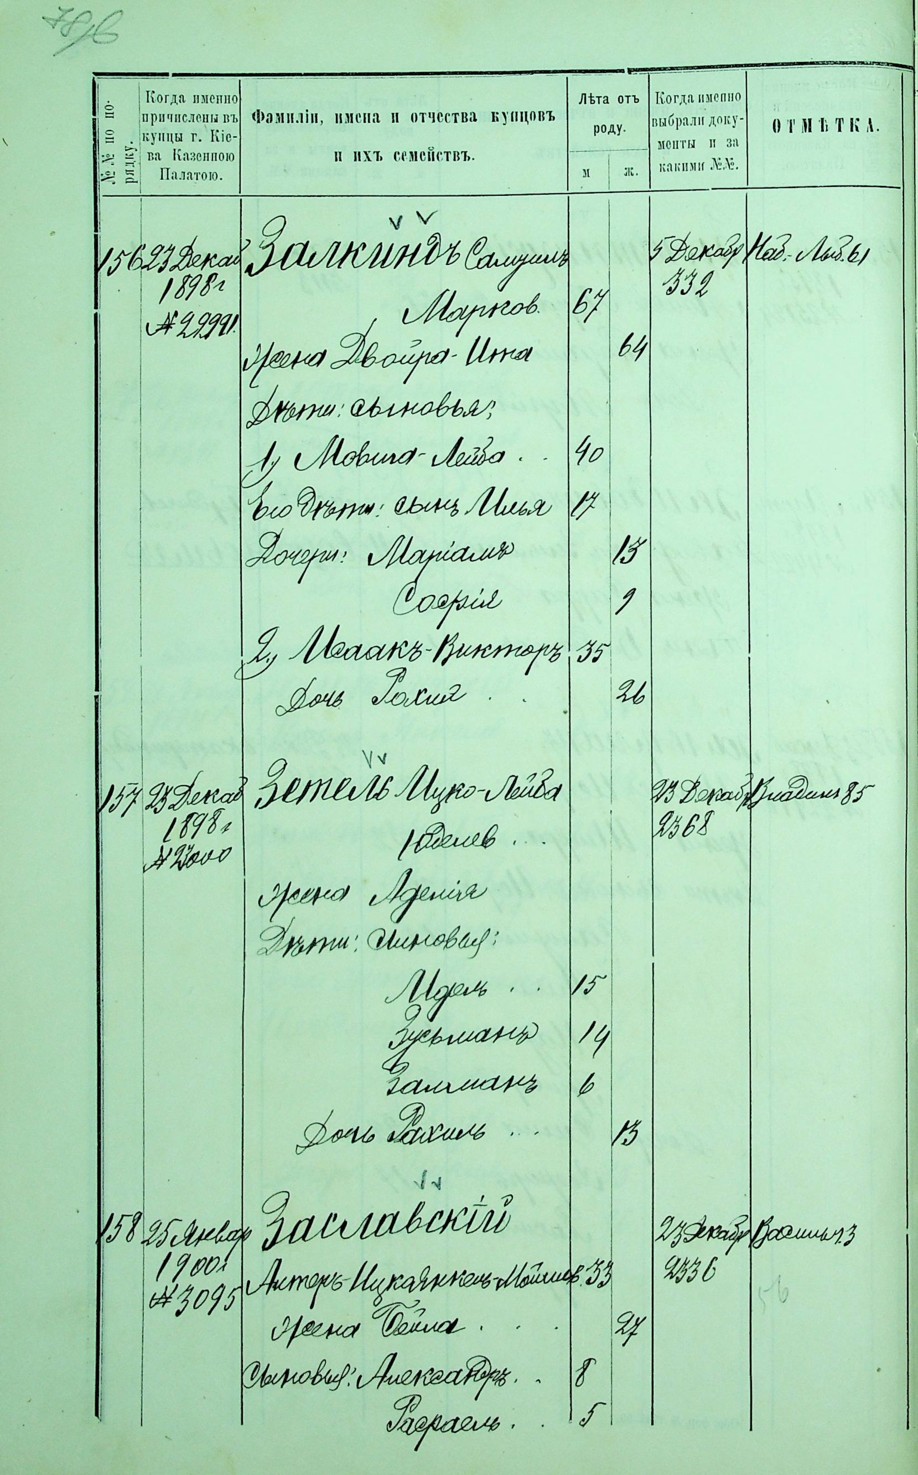 №№ по по-
рядку.
Когда именно
причислены въ
купцы г. Кіе-
ва Казенною
Палатою.
Фамиліи, имена и отчества купцовъ
и ихъ семействъ.
Лѣта отъ
роду.
м ж.
Когда именно
выбрали доку-
менты и за
какими №№.
ОТМѢТКА.
156 23 Декаб Залкиндъ Самуилъ 5 Декабр Наб.-Лыб. 61
1898 г 332
№ 22991. Марков. 67
Жена Двойра-Ита 64
Дѣти: сыновья:
1) Мовша-Лейба . . 40
Его дѣти: сынъ Илья 17
Дочери: Маріамъ 13
Софія 9
2) Исаакъ-Викторъ 35
Дочь Рохля . . 26
157 23 Декаб Зетель Ицко-Лейба 23 Декабр Владим 85
1898 г Юделев . . . 2368
№ 23000
Жена Аделія
Дѣти: сыновья:
Идель . . 15
Зусьманъ 14
Залманъ 6
Дочь Рахиль . . . 13
158 25 Январ Заславскій 23 Декабр Васильк 23
1900 г Ицка Янкель Мошков. 33 2336
№ 3095
Жена Бейла . . . 27
Сыновья: Александръ . . 8
Рафаель . . 5
56